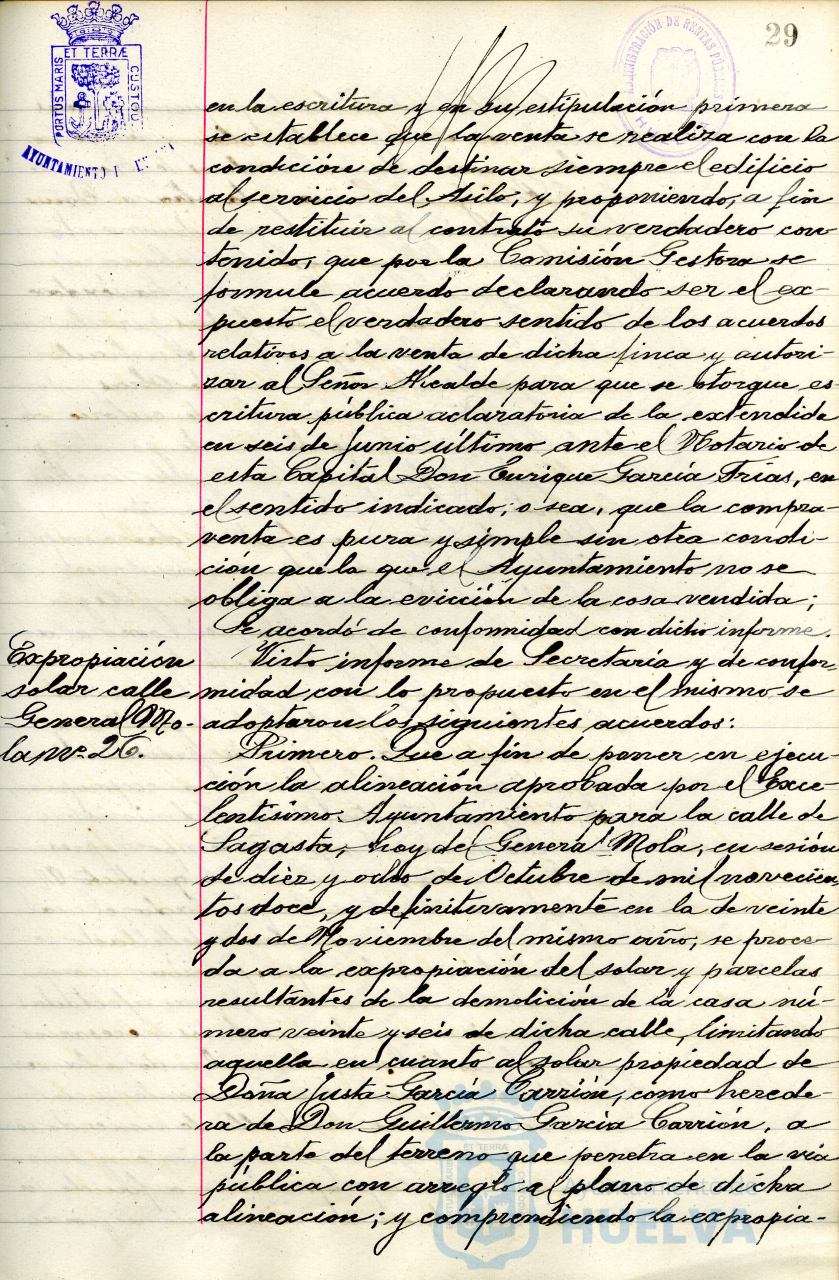 29
PORTUS MARIS ET TERRÆ CUSTOD
AYUNTAMIENTO
ADMINISTRACIÓN DE RENTAS PÚBLICAS
en la escritura y en su estipulación primera
se establece que la venta se realiza con la
condición de destinar siempre el edificio
al servicio del Asilo, y proponiendo, a fin
de restituir al contrato su verdadero con-
tenido, que por la Comisión Gestora se
formule acuerdo declarando ser el ex-
puesto el verdadero sentido de los acuerdos
relativos a la venta de dicha finca y autori-
zar al Señor Alcalde para que se otorgue es-
critura pública aclaratoria de la extendida
en seis de Junio último ante el Notario de
esta Capital Don Enrique García Frías, en
el sentido indicado; o sea, que la compra-
venta es pura y simple sin otra condi-
ción que la que el Ayuntamiento no se
obliga a la evicción de la cosa vendida;
Se acordó de conformidad con dicho informe.
Expropiación
solar calle
General Mo-
la nº 26.
Visto informe de Secretaría y de confor-
midad con lo propuesto en el mismo se
adoptaron los siguientes acuerdos:
Primero. Que a fin de poner en ejecu-
ción la alineación aprobada por el Exce-
lentísimo Ayuntamiento para la calle de
Sagasta, hoy del General Mola, en sesión
de diez y ocho de Octubre de mil novecien
tos doce, y definitivamente en la de veinte
y dos de Noviembre del mismo año, se proce-
da a la expropiación del solar y parcelas
resultantes de la demolición de la casa nú-
mero veinte y seis de dicha calle, limitando
aquella en cuanto al solar propiedad de
Doña Justa García Carrión, como herede-
ra de Don Guillermo García Carrión, a
la parte del terreno que penetra en la vía
pública con arreglo al plano de dicha
alineación; y comprendiendo la expropia-
Ayuntamiento de
HUELVA